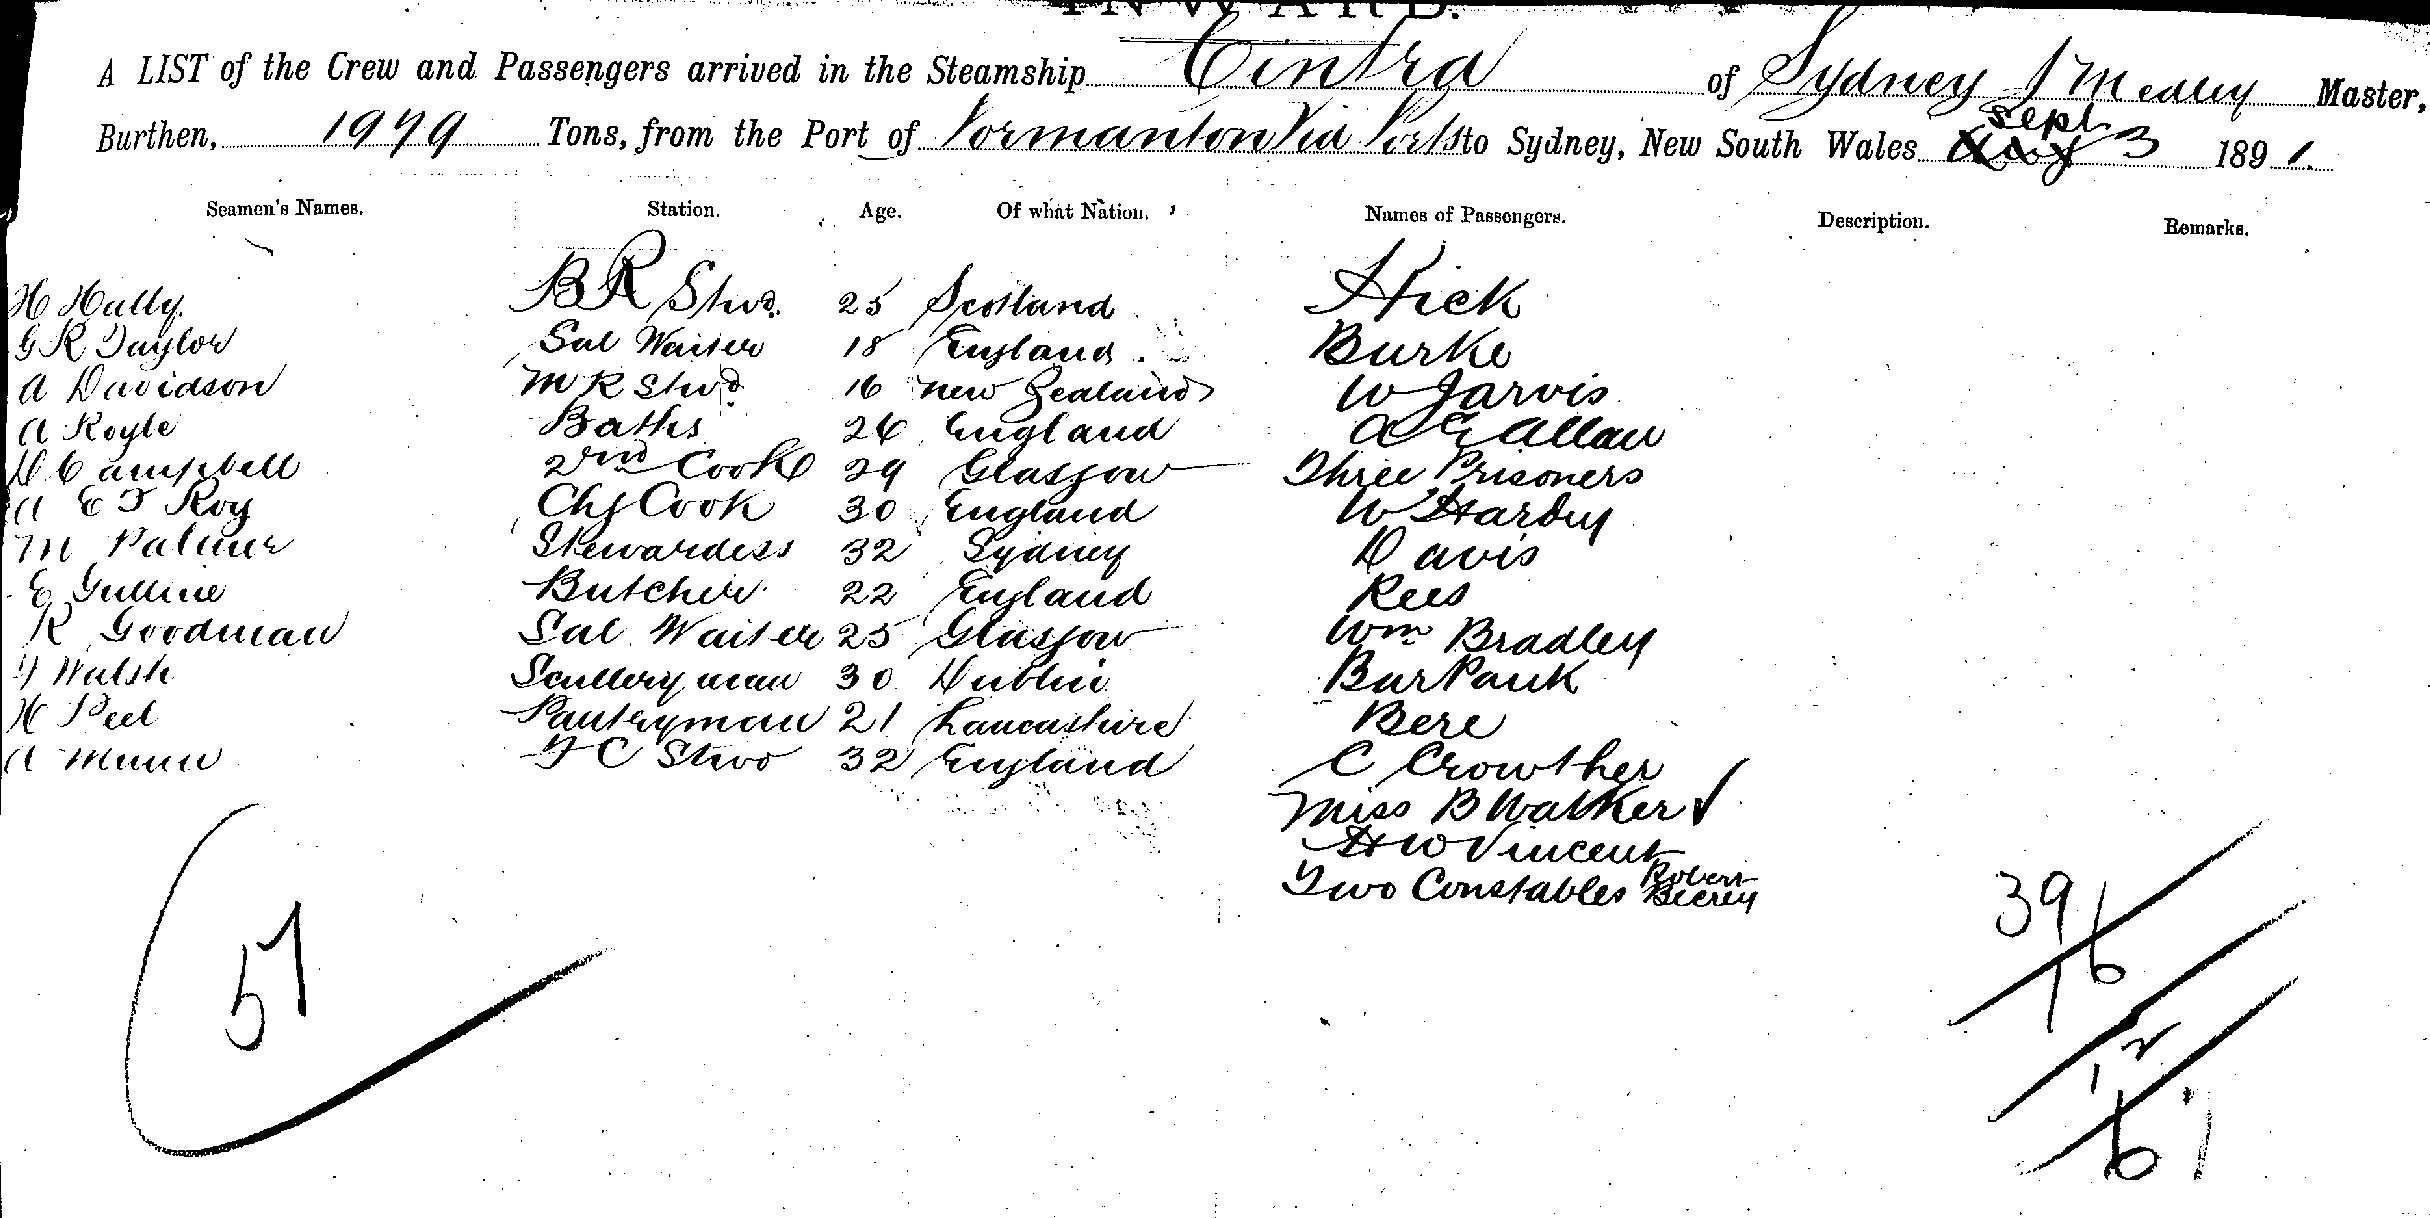 INWARD.
A LIST of the Crew and Passengers arrived in the Steamship Cintra of Sydney J Medley Master,
Burthen, 1979 Tons, from the Port of Normanton Via Ports to Sydney, New South Wales Sept 3 1891.
Seamen's Names. Station. Age. Of what Nation. Names of Passengers. Description. Remarks.
H Hally B R Stwd. 25 Scotland Hick
G R Taylor Sal Waiter 18 England Burke
A Davidson M R Stwd 16 New Zealand W Jarvis
A Royle Baths 26 England A G Allan
D Campbell 2nd Cook 29 Glasgow Three Prisoners
A E F Roy Chf Cook 30 England W Hardy
M Palmer Stewardess 32 Sydney Davis
E Gulline Butcher 22 England Rees
R Goodman Sal Waiter 25 Glasgow Wm Bradley
Walsh Scullery man 30 Dublin Burbank
H Peel Pantryman 21 Lancashire Bere
A Munn F C Stwd 32 England C Crowther
Miss B Walker
H W Vincent
Two Constables Robert
57 39
16
12